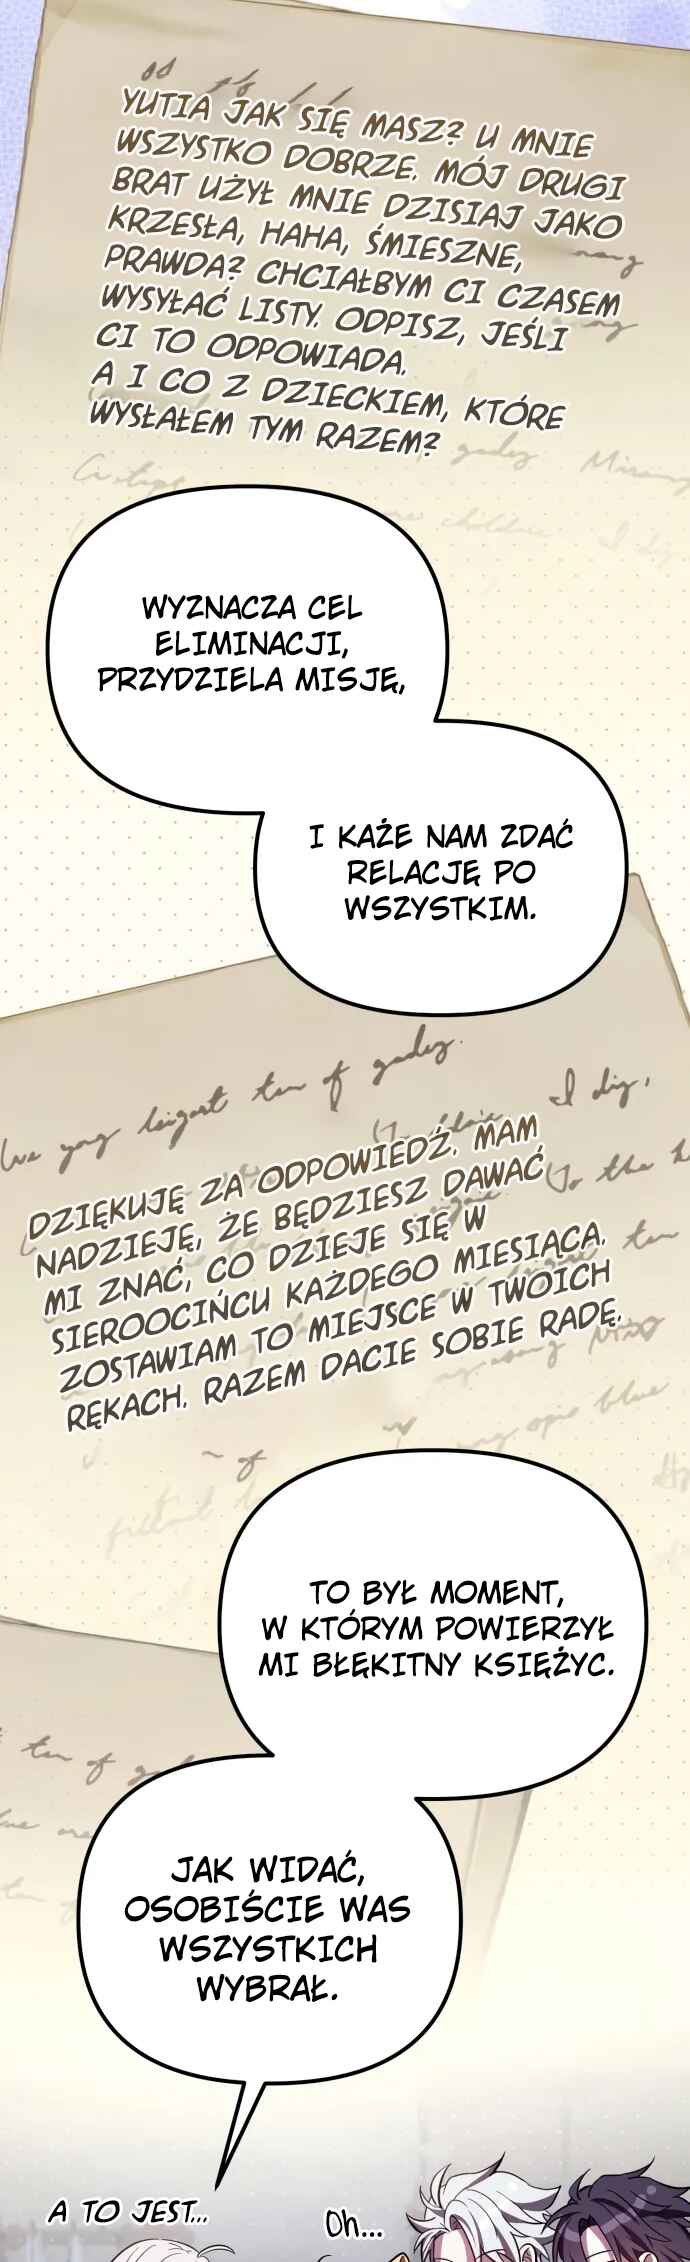 YUTIA JAK SIĘ MASZ? U MNIE
WSZYSTKO DOBRZE. MÓJ DRUGI
BRAT UŻYŁ MNIE DZISIAJ JAKO
KRZESŁA, HAHA, ŚMIESZNE,
PRAWDA? CHCIAŁBYM CI CZASEM
WYSYŁAĆ LISTY. ODPISZ, JEŚLI
CI TO ODPOWIADA.
A I CO Z DZIECKIEM, KTÓRE
WYSŁAŁEM TYM RAZEM?
WYZNACZA CEL
ELIMINACJI,
PRZYDZIELA MISJĘ,
I KAŻE NAM ZDAĆ
RELACJĘ PO
WSZYSTKIM.
DZIĘKUJĘ ZA ODPOWIEDŹ. MAM
NADZIEJĘ, ŻE BĘDZIESZ DAWAĆ
MI ZNAĆ, CO DZIEJE SIĘ W
SIEROCIŃCU KAŻDEGO MIESIĄCA.
ZOSTAWIAM TO MIEJSCE W TWOICH
RĘKACH. RAZEM DACIE SOBIE RADĘ.
TO BYŁ MOMENT,
W KTÓRYM POWIERZYŁ
MI BŁĘKITNY KSIĘŻYC.
JAK WIDAĆ,
OSOBIŚCIE WAS
WSZYSTKICH
WYBRAŁ.
A TO JEST...
Oh...